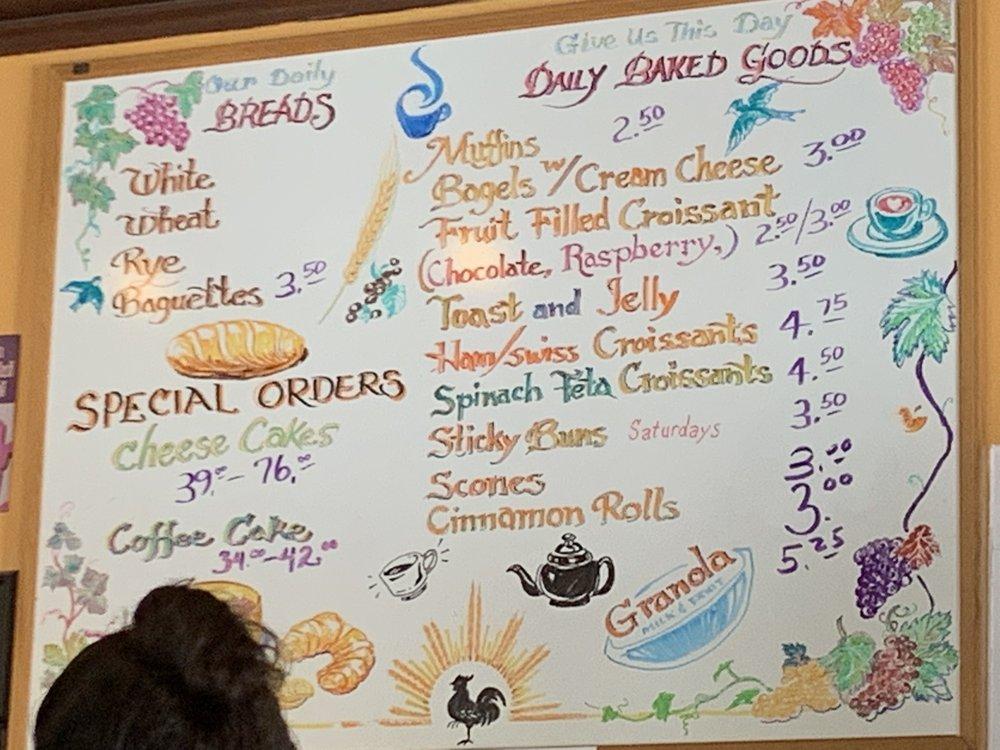 Our Daily
BREADS
White
Wheat
Rye
Baguettes 3.50
SPECIAL ORDERS
Cheese Cakes
39.00 - 76.00
Coffee Cake
34.00 - 42.00
Give Us This Day
DAILY BAKED GOODS
Muffins 2.50
Bagels w/Cream Cheese 3.00
Fruit Filled Croissant
(Chocolate, Raspberry,) 2.50/3.00
Toast and Jelly 3.50
Ham/swiss Croissants 4.75
Spinach Feta Croissants 4.50
Sticky Buns Saturdays 3.50
Scones 3.00
Cinnamon Rolls 3.00
Granola 5.25
MILK & FRUIT